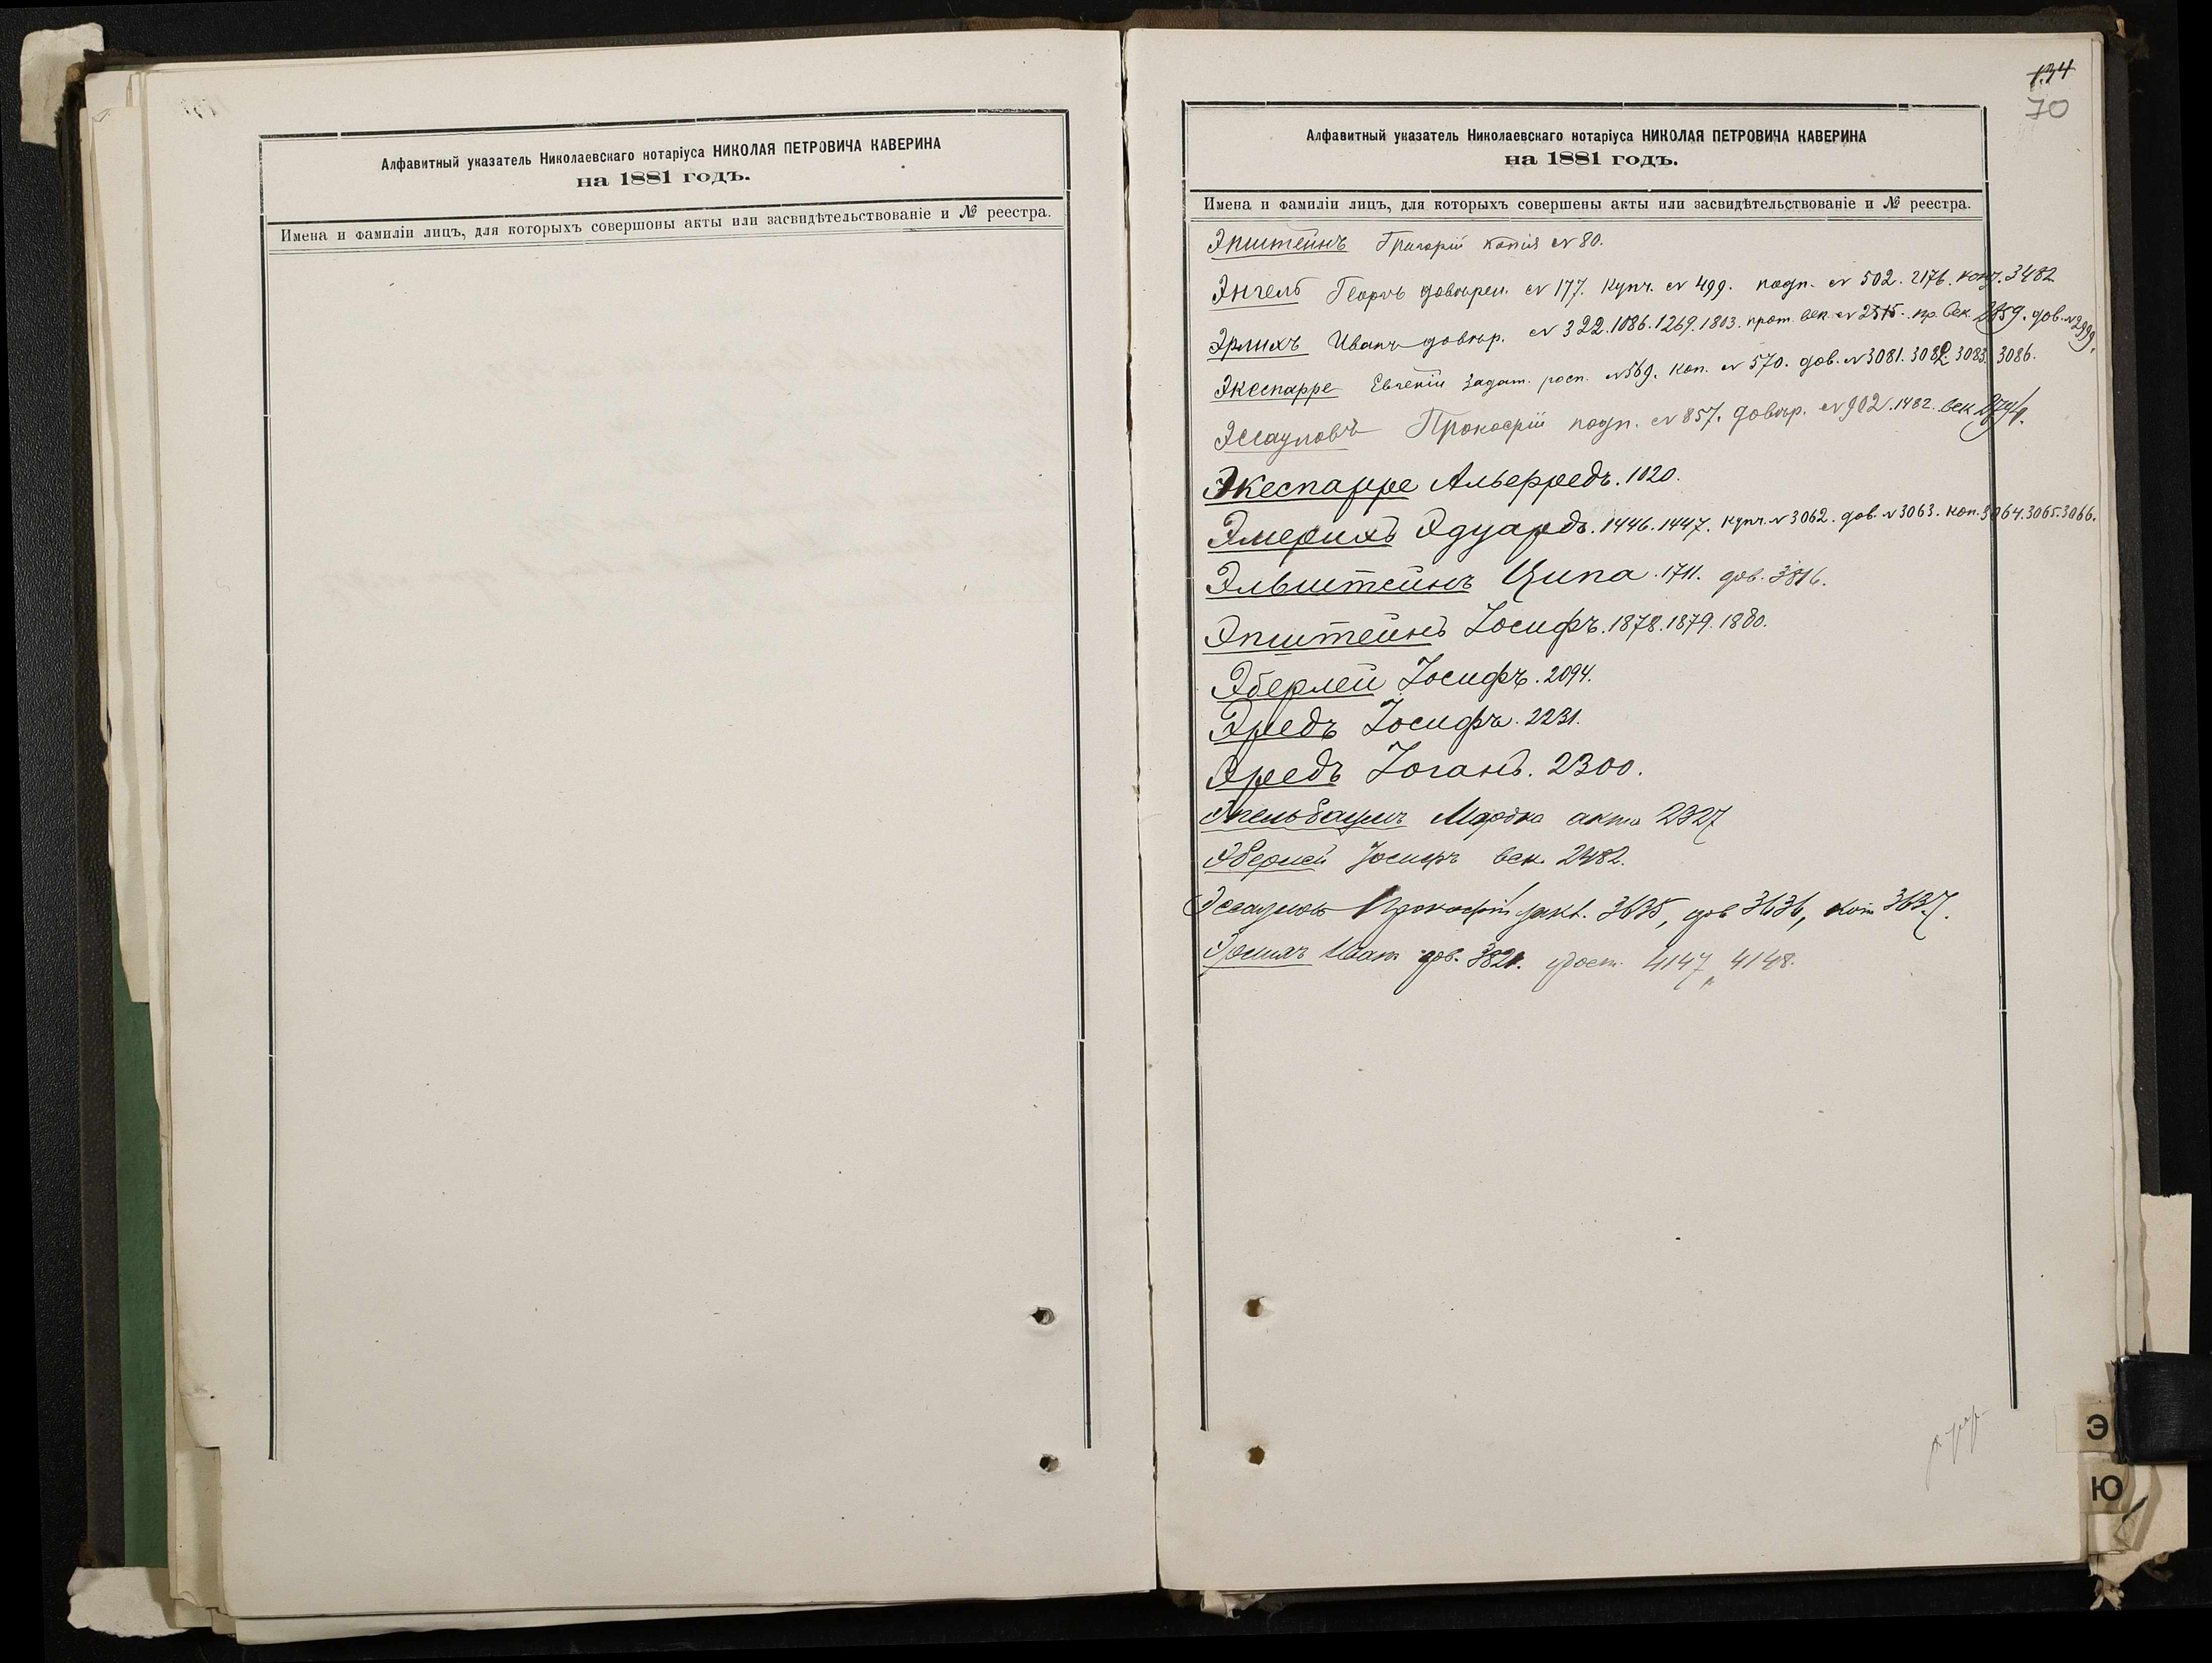 Алфавитный указатель Николаевскаго нотаріуса НИКОЛАЯ ПЕТРОВИЧА КАВЕРИНА
на 1881 годъ.
Имена и фамиліи лицъ, для которыхъ совершоны акты или засвидѣтельствованіе и № реестра.
134
70
Алфавитный указатель Николаевскаго нотаріуса НИКОЛАЯ ПЕТРОВИЧА КАВЕРИНА
на 1881 годъ.
Имена и фамиліи лицъ, для которыхъ совершены акты или засвидѣтельствованіе и № реестра.
Эпштейнъ Григорій копія № 80.
Энгель Георгъ довѣрен. № 177. купч. № 499. подп. № 502. 2176. 3482
Эрлихъ Иванъ довѣр. № 322. 1086. 1269. 1803. прот. век. № 2515. пр. век. 2859. дов. № 2999.
Экеспарре Евгеній задат. росп. № 569. коп. № 570. дов. № 3081. 3082. 3083. 3086.
Эссауловъ Прокофій подп. № 857. довѣр. № 902. 1482. век.
Экеспарре Альфредъ. 1020.
Эмерихъ Эдуардъ. 1446. 1447. купч. № 3062. дов. № 3063. коп. 3064. 3065. 3066.
Эльштейнъ Ципа. 1711. дов. 3816.
Эпштейнъ Іосифъ. 1878. 1879. 1880.
Эберлей Іосифъ. 2094.
Эредъ Іосифъ. 2231.
Эредъ Іоганъ. 2300.
Мордко акта 2327
Эберлей Іосифъ век. 2482.
Эссауловъ Прокофій 3635, дов 3636, коп 3637.
Эрлихъ Иван дов. 3821. 4147, 4148.
Э
Ю